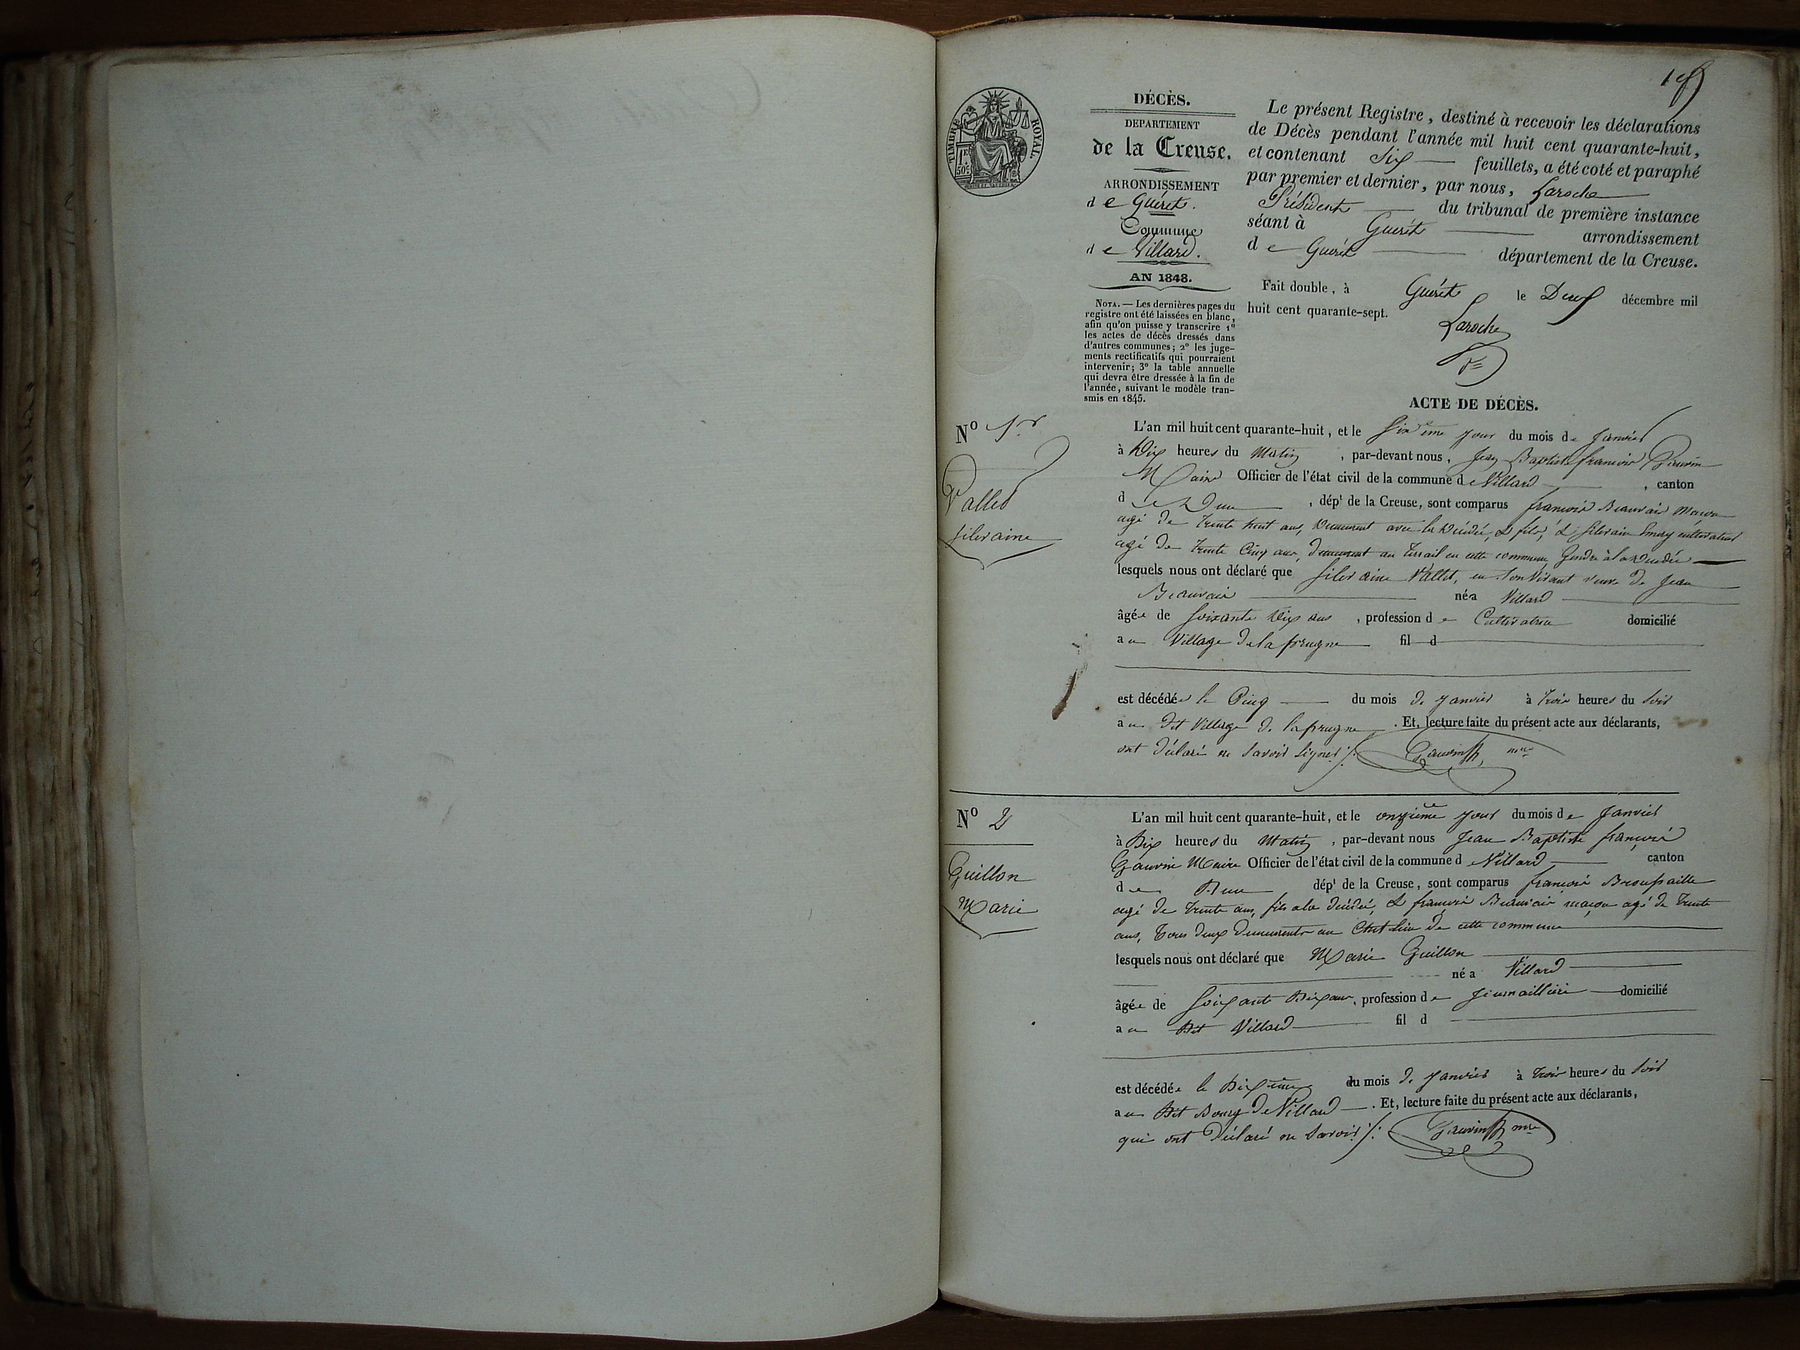 1er
TIMBRE ROYAL.
DÉCÈS.
DEPARTEMENT
de la Creuse.
ARRONDISSEMENT
de Guéret.
Commune
de Villard.
AN 1848.
NOTA. — Les dernières pages du
registre ont été laissées en blanc,
afin qu'on puisse y transcrire 1º
les actes de décès dressés dans
d'autres communes; 2º les juge-
ments rectificatifs qui pourraient
intervenir; 3º la table annuelle
qui devra être dressée à la fin de
l'année, suivant le modèle trans-
mis en 1845.
Le présent Registre, destiné à recevoir les déclarations
de Décès pendant l'année mil huit cent quarante-huit,
et contenant Six feuillets, a été coté et paraphé
par premier et dernier, par nous, Laroche
Président du tribunal de première instance
séant à Guéret arrondissement
de Guéret département de la Creuse.
Fait double, à Guéret le Deux décembre mil
huit cent quarante-sept.
Laroche
ACTE DE DÉCÈS.
Nº 1er
Vallet
Silvaine
L'an mil huit cent quarante-huit, et le Sixième jour du mois de Janvier
à Dix heures du Matin, par-devant nous, Jean Baptiste françois Gauvin
Maire Officier de l'état civil de la commune de Villard, canton
de Dun, dépt de la Creuse, sont comparus francois Beauvais Maçon
agé de trente huit ans, demeurant avec la décédée, & fils, & Silvain cultivateur
agé de trente Cinq ans, demeurant au en cette commune, Gendre à la décédée
lesquels nous ont déclaré que Silvaine Vallet, en son vivant veuve de Jean
Beauvais née a Villard
âgée de Soixante Dix ans, profession de Cultivatrice domicilié
au Village de la prugne fil d
est décédée le Cinq du mois de Janvier à trois heures du soir
au dit Village de la prugne. Et, lecture faite du présent acte aux déclarants,
ont déclaré ne savoir signer ./. Gauvin mre
Nº 2
Guillon
Marie
L'an mil huit cent quarante-huit, et le onzième jour du mois de Janvier
à Dix heures du Matin, par-devant nous Jean Baptiste françois
Gauvin Maire Officier de l'état civil de la commune de Villard canton
de Dun dépt de la Creuse, sont comparus francois Broussaille
agé de trente ans, fils a la décédée, & françois Beauvais maçon agé de trente
ans, tous deux demeurants au Chef lieu de cette commune
lesquels nous ont déclaré que Marie Guillon
née a Villard
âgée de Soixante Dix ans, profession de Journalliére domicilié
au Dit Villard fil d
est décédée le Dixième du mois de Janvier à trois heures du soir
au Dit Bourg de Villard. Et, lecture faite du présent acte aux déclarants,
qui ont déclaré ne savoir ./. Gauvin mre